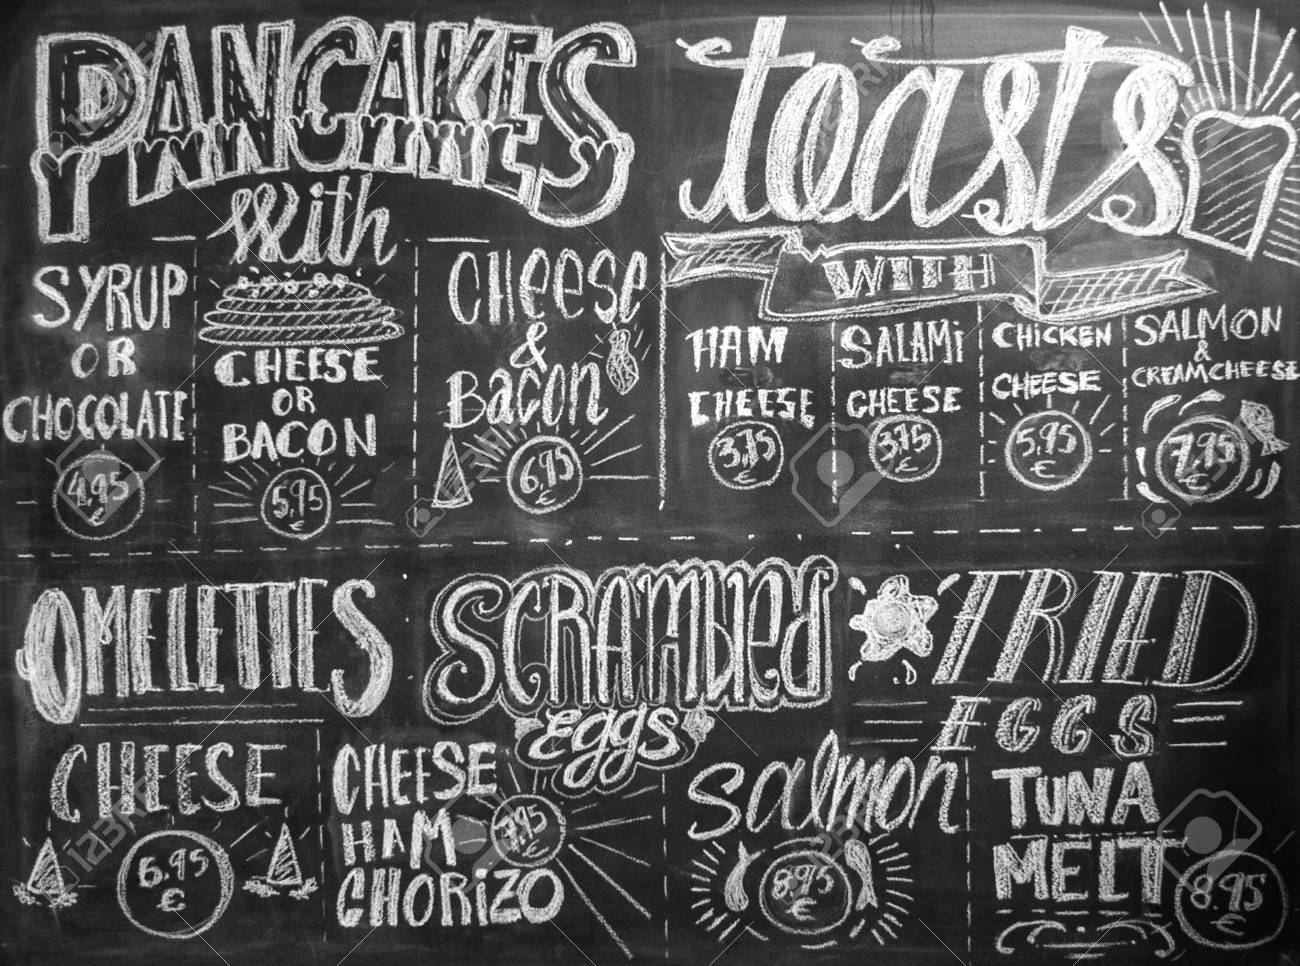 PANCAKES
with
SYRUP
OR
CHOCOLATE
4,95
€
CHEESE
OR
BACON
5,95
€
CHEESE
&
BACON
6,95
€
toasts
WITH
HAM
CHEESE
3,75
€
SALAMI
CHEESE
3,75
€
CHICKEN
CHEESE
5,95
€
SALMON
&
CREAMCHEESE
7,95
€
OMELETTES
SCRAMBLED
EGGS
FRIED
EGGS
CHEESE
6,95
€
CHEESE
HAM
CHORIZO
7,95
€
Salmon
8,95
€
TUNA
MELT
8,95
€
123RF